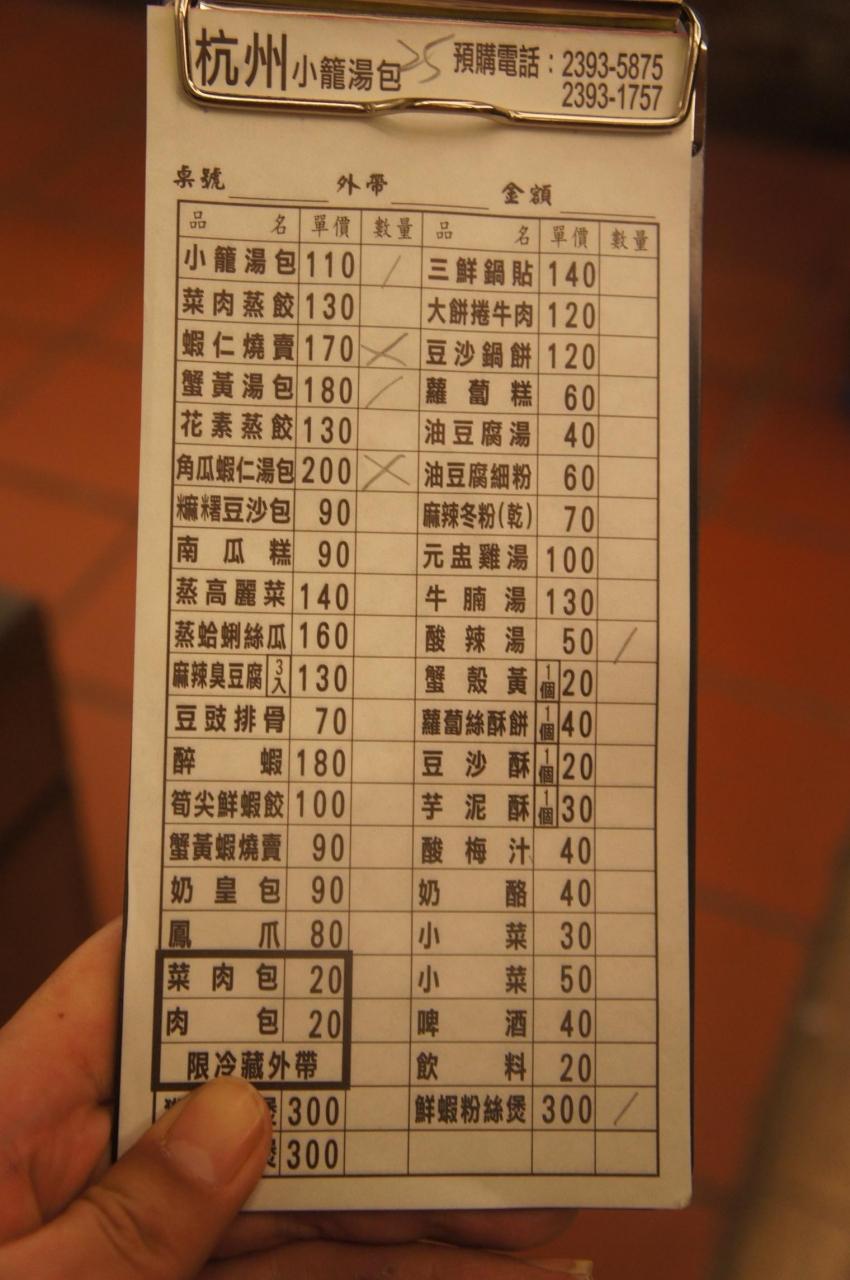 杭州小籠湯包 25 預購電話：2393-5875
2393-1757
桌號 外帶 金額
品名 單價 數量 品名 單價 數量
小籠湯包 110 / 三鮮鍋貼 140
菜肉蒸餃 130 大餅捲牛肉 120
蝦仁燒賣 170 X 豆沙鍋餅 120
蟹黃湯包 180 / 蘿蔔糕 60
花素蒸餃 130 油豆腐湯 40
角瓜蝦仁湯包 200 X 油豆腐細粉 60
糜糬豆沙包 90 麻辣冬粉(乾) 70
南瓜糕 90 元盅雞湯 100
蒸高麗菜 140 牛腩湯 130
蒸蛤蜊絲瓜 160 酸辣湯 50 /
麻辣臭豆腐 3入 130 蟹殼黃 1個 20
豆豉排骨 70 蘿蔔絲酥餅 1個 40
醉蝦 180 豆沙酥 1個 20
筍尖鮮蝦餃 100 芋泥酥 1個 30
蟹黃蝦燒賣 90 酸梅汁 40
奶皇包 90 奶酪 40
鳳爪 80 小菜 30
菜肉包 20 小菜 50
肉包 20 啤酒 40
限冷藏外帶 飲料 20
煲 300 鮮蝦粉絲煲 300 /
煲 300